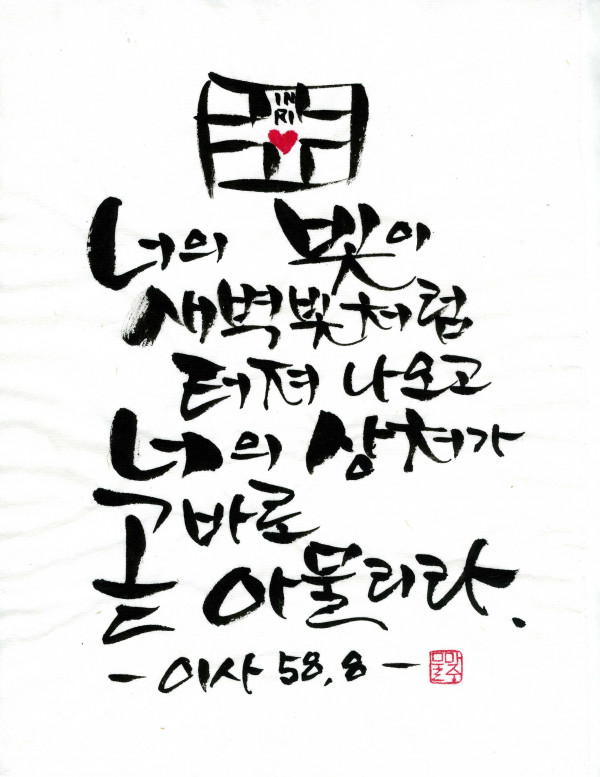 IN
RI
너의 빛이
새벽빛처럼
터져 나오고
너의 상처가
곧바로
아물리라.
- 이사 58,8 -